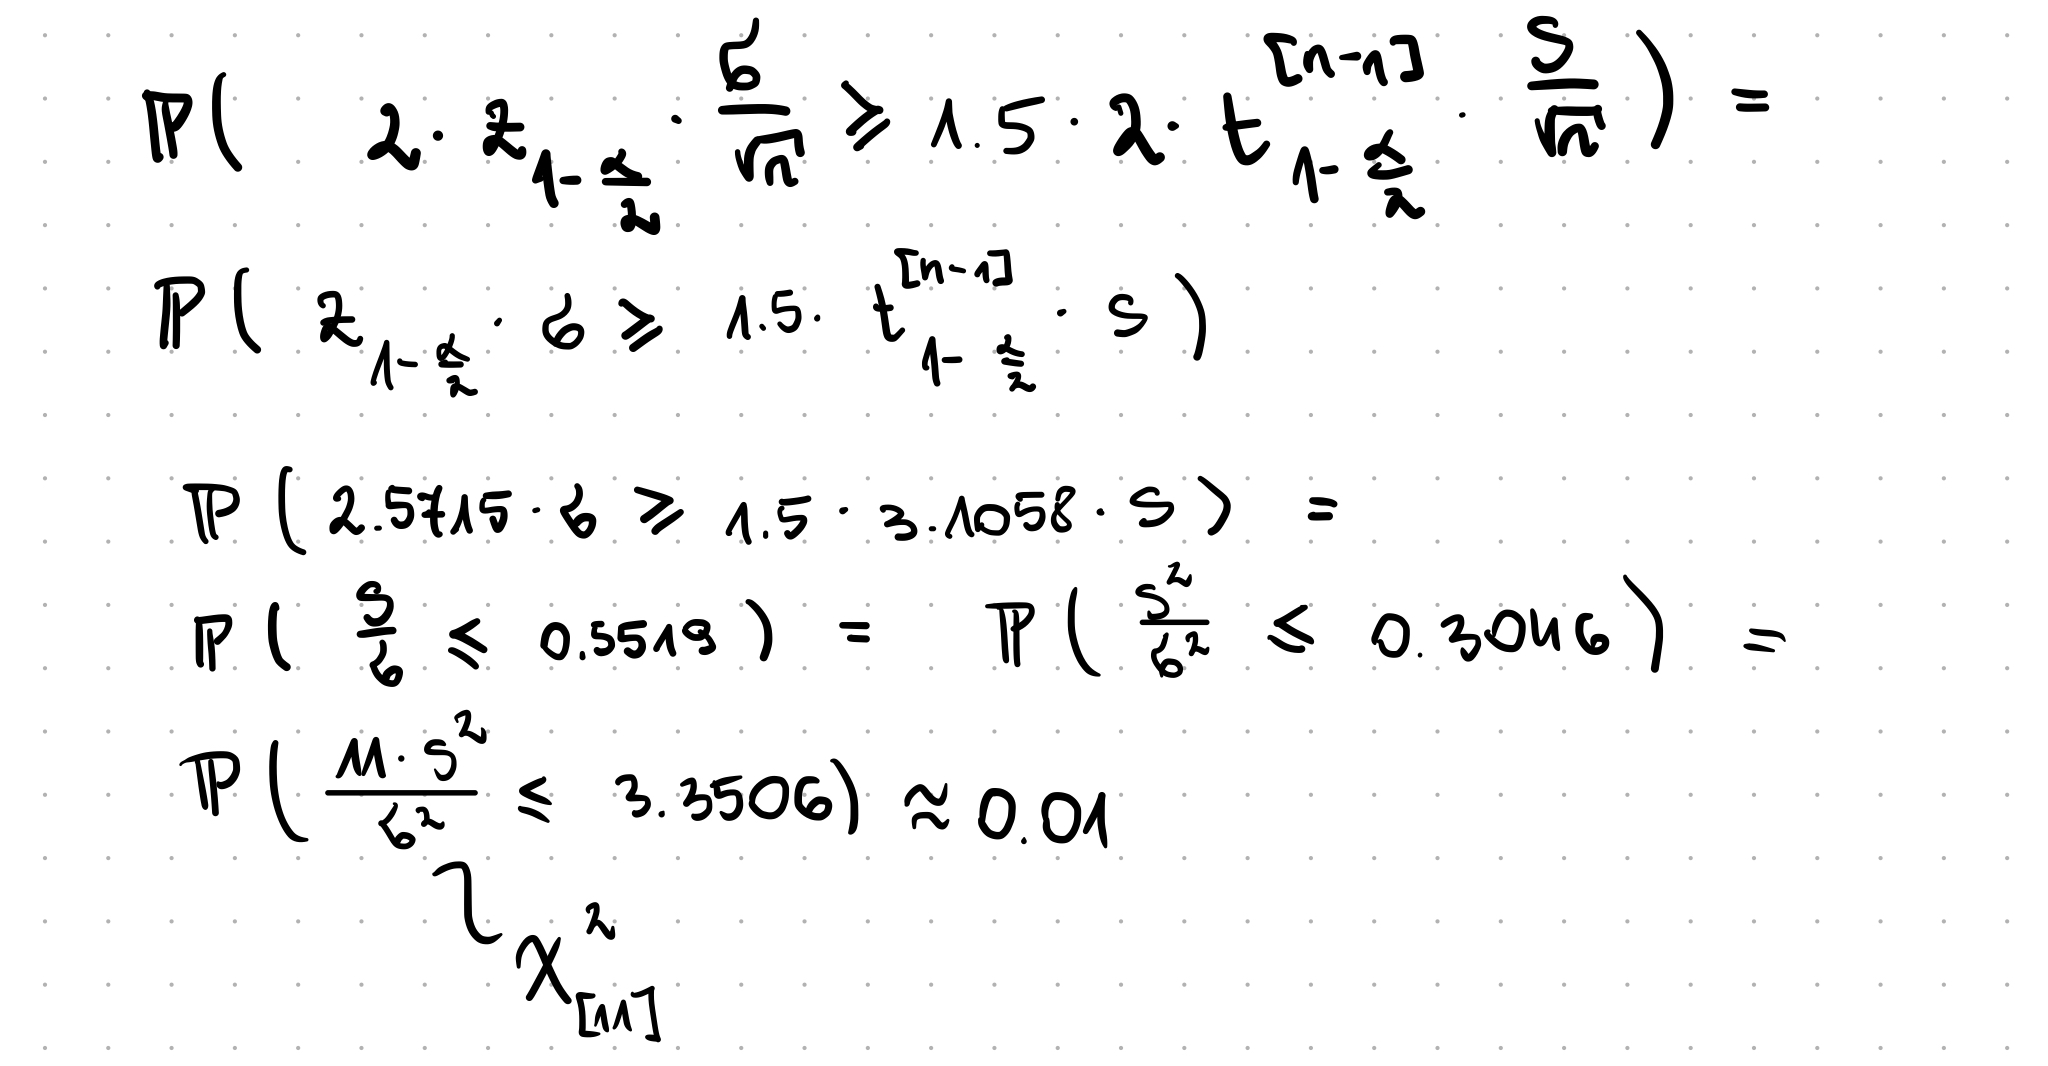 ℙ( 2 · z_{1-α/2} · σ/√n ⩾ 1.5 · 2 · t^{[n-1]}_{1-α/2} · S/√n ) =
ℙ( z_{1-α/2} · σ ⩾ 1.5 · t^{[n-1]}_{1-α/2} · S )
ℙ( 2.5715 · σ ⩾ 1.5 · 3.1058 · S ) =
ℙ( S/σ ⩽ 0.5519 ) = ℙ( S²/σ² ⩽ 0.3046 ) =
ℙ( 11 · S²/σ² ⩽ 3.3506 ) ≈ 0.01
χ²_{[11]}